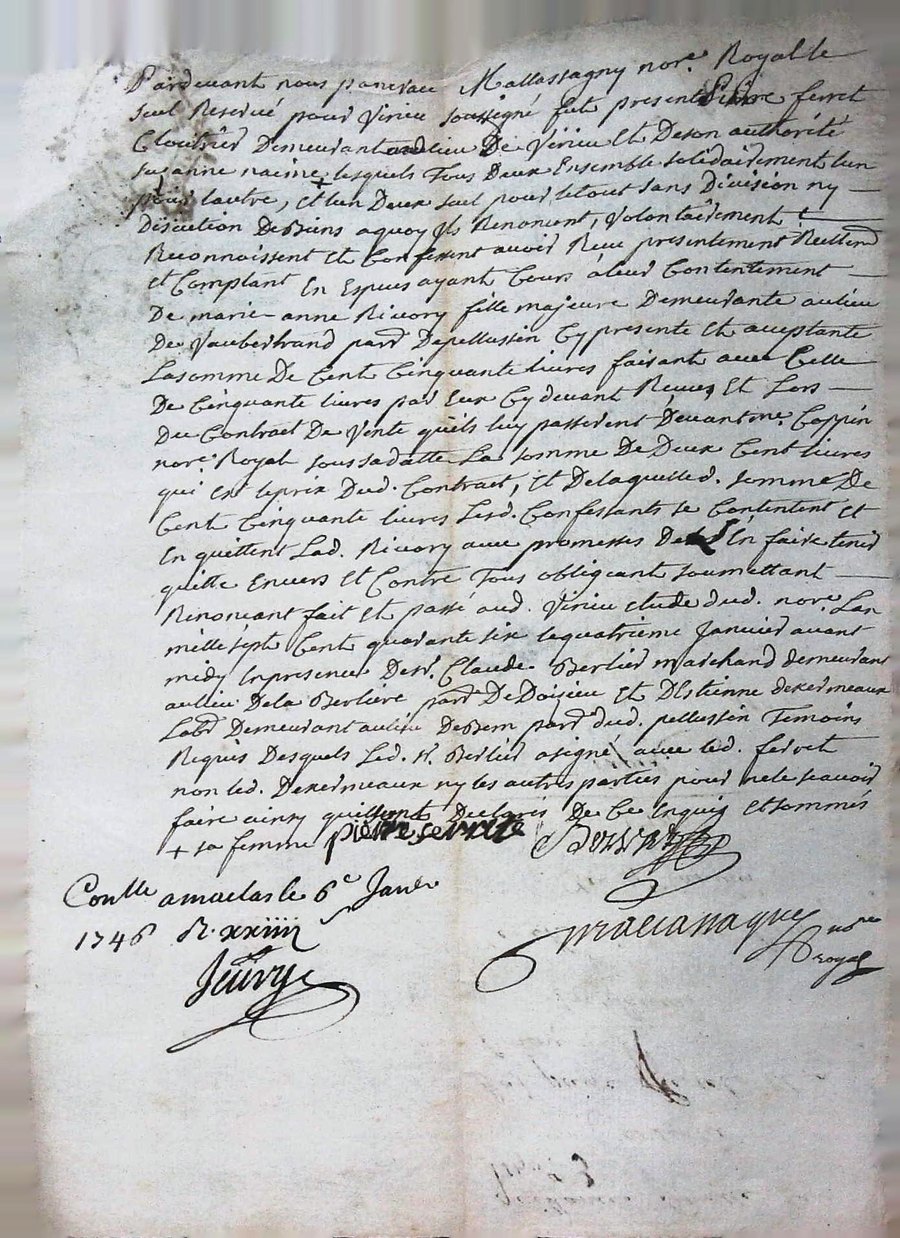 Pardevant nous pancrace Mallassagny nore. Royal le
seul Reservé pour Virieu soussigné fut present Pierre ferret
Cloutrier Demeurant au lieu De Virieu Et De son authorité
suzanne naime + lesquels Tous Deux Ensemble solidairement lun
pour lautre, et lun Deux seul pour letout sans Division ny
Discution De Biens aquoy ils Renoncent, Volontairement
Reconnoissent Et Confessent avoir Receu presentement Reellemt
et Comptant En Especes ayant Cours à leur Contentement
De marie-anne Rivory fille majeure Demeurante aulieu
De Vaubertrand parr Depellussin Cy presente Et acceptante
La somme De Cent Cinquante livres faisant avec Celle
De Cinquante livres par Eux Cy devant Receues Et Lors
Du Contract De Vente quils luy passerent Devant me. Coppin
nore. Royal sous sa datte La somme De Deux Cent livres
qui Est leprix Dud. Contract, Et Delaquelled. somme De
Cent Cinquante livres Lesd. Confessants se Contentent Et
En quittent Lad. Rivory avec promesses De En faire tenir
quitte Envers Et Contre Tous obligeant soumettant
Renonceant fait Et passé aud. Virieu etude dud. nore. Lan
mille sept Cent quarante six lequatrieme Janvier avant
midy En presence De sr. Claude Berlier marchand demeurant
aulieu De la Berliere parr De Doizieu Et D'Estienne dexermeaux
Labr Demeurant aulieu De Bem parr dud. pellussin Temoins
Requis Desquels Led. sr. Berlier a signé avec led. ferret
non led. Dexermeaux ny les autres parties pour ne le scavoir
faire ainsy quils ont Declarés De Ce Enquis Et sommés
+ sa femme pierre ferrete Berlier
Conlle amaclas le 6e Janer
1746 R. xxiiii
Mallassagny nore
royal